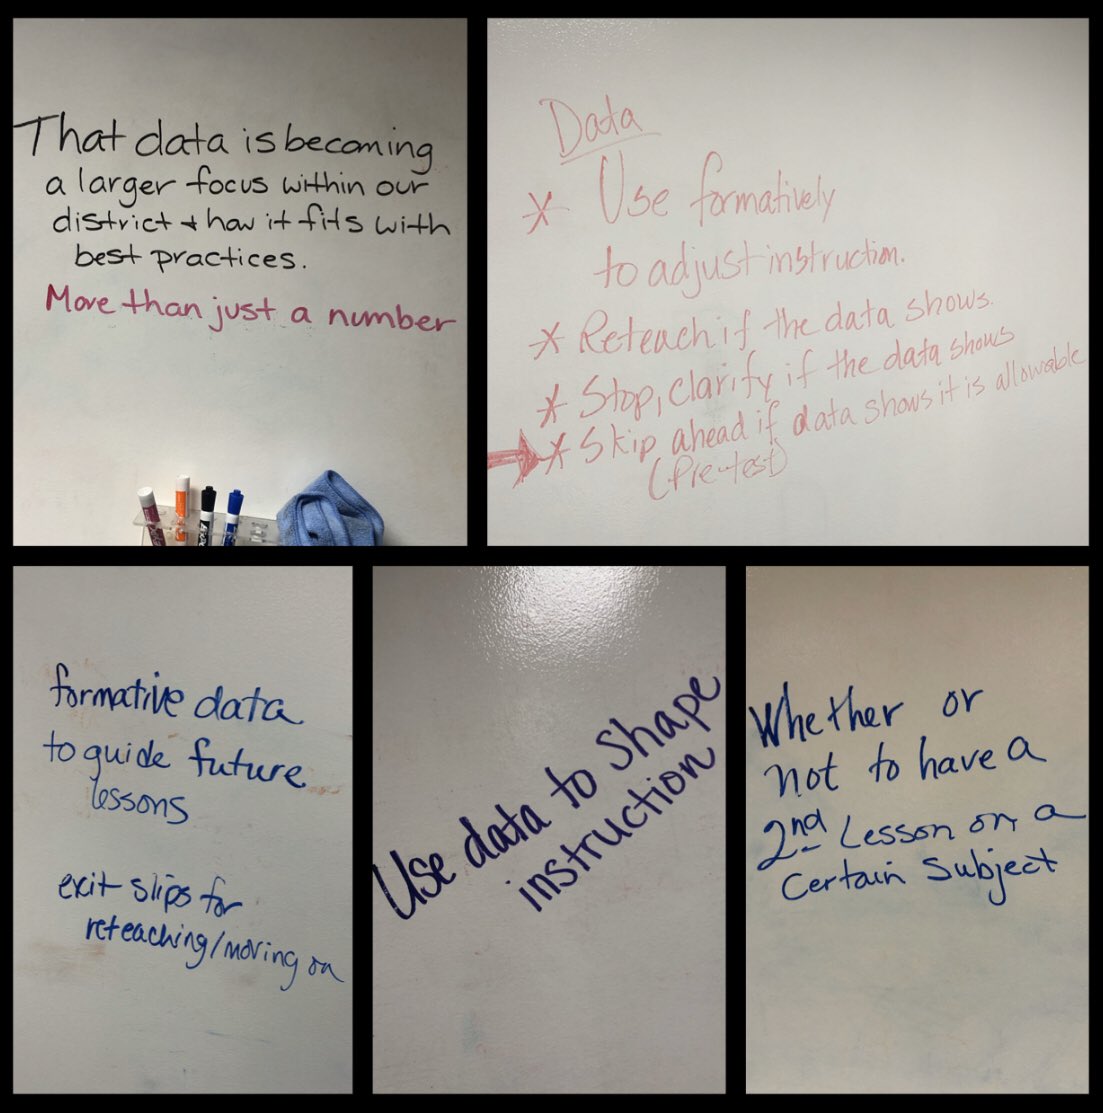 That data is becoming
a larger focus within our
district + how it fits with
best practices.
More than just a number
Data
* Use formatively
to adjust instruction.
* Reteach if the data shows.
* Stop, clarify if the data shows
* Skip ahead if data shows it is allowable
(Pre-test)
formative data
to guide future
lessons
exit slips for
reteaching/moving on
Use data to shape
instruction
Whether or
not to have a
2nd Lesson on a
Certain Subject